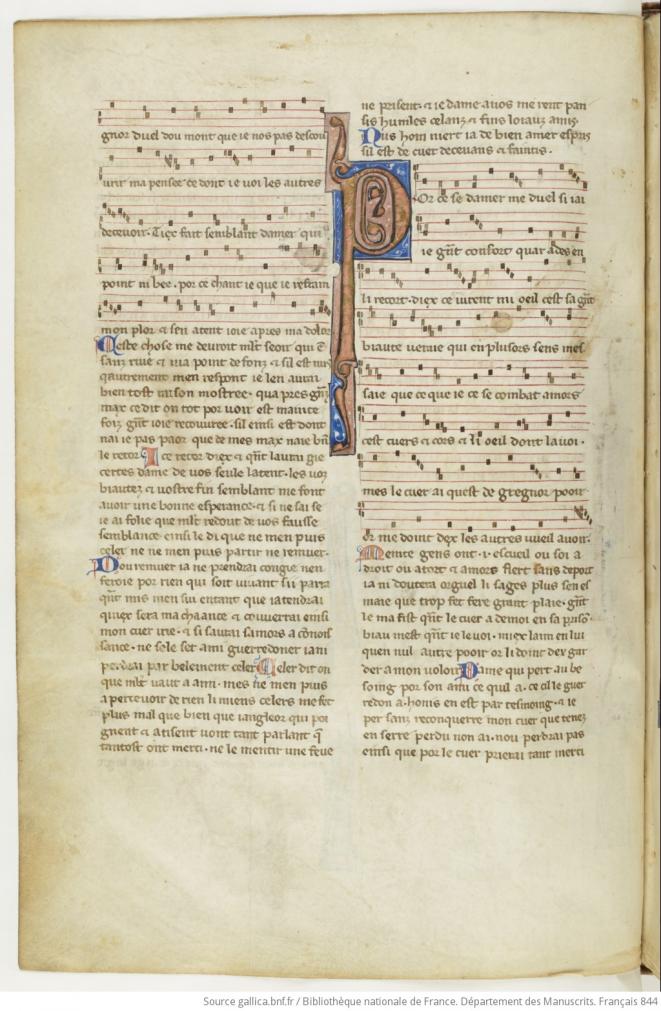 gnor duel dou mont que ie nos pas descou
urir ma pensee ce dont ie uoi les autres
deceuoir. Tiex fait semblant damer qui
point ni bee. por ce chant ie que ie restam
mon plor & sen atent ioie apres ma dolor
Ceste chose me deuroit mlt seoir qui ē
sanz ruie & na point de fonz. & sil est nus
qautrement men respont ie len aurai
bien tost raison mostree. qua pres
max ce dit on tot por uoir est mainte
foiz gñt ioie recouuree. sil einsi est dont
nai ie pas paor que de mes max naie bñ
le retor. I ce retor diex & qñt laurai gie
certes dame de uos seule latent. les uoz
biautez & uostre fin semblant me font
auoir une bonne esperance. & si ne sai se
ie ai folie que mlt redout de uos fausse
semblance einsi le di que ne men puis
celer ne ne men puis partir ne remuer.
Dou remuer ia ne prendrai congie nen
feroie por rien qui soit uiuant si parra
qñt mis men sui entant que iatendrai
quiex sera ma chaance & couuertai einsi
mon cuer uie. & si saurai samors a conois
sance. ne sole set ami guerredoner iani
perdrai par belement celer Celer dit on
que mlt uaut a ami. mes ne men puis
a perceuoir de rien li miens celers me fet
plus mal que bien que iangleor qui poi
gnent & atisent uont tant parlant q̄
tantost ont merci. ne le mentir une feue
ne prisent. & ie dame a uos me rent pan
sis humles celanz & fins loiaux amis.
Nus hom niert ia de bien amer espris
sil est de cuer deceuans & faintis.
POr ce se damer me duel si iai
ie gñt confort quar ades en
li recort. diex ce uirent mi oeil cest sa gñt
biaute ueraie qui en plusors sens mes
saie que ce que ie ce se combat amors
cest cuers & cors & li oeil dont la uoi.
mes le cuer ai quest de gregnor pooir
or me doint dex les autres uueil auoir.
Meinte gens ont. i. escueil ou soi a
droit ou atort & amors fiert sanz deport
ia ni doutera orguel li sages plus sen es
maie que trop fet fere grant plaie. gñt
le ma fist qñt le cuer a demoi en sa prisō
biau mest qñt ie le uoi. miex laim en lui
quen nul autre pooir or li doint dex gar
der a mon uoloir Dame qui pert au be
soing por son ami ce quil a. ce cil le guer
redon a. honis en est par tesmoing. & ie
per sanz reconquerre mon cuer que tenez
en serre perdu non ai. nou perdrai pas
einsi que por le cuer prierai tant merci
Source gallica.bnf.fr / Bibliothèque nationale de France. Département des Manuscrits. Français 844